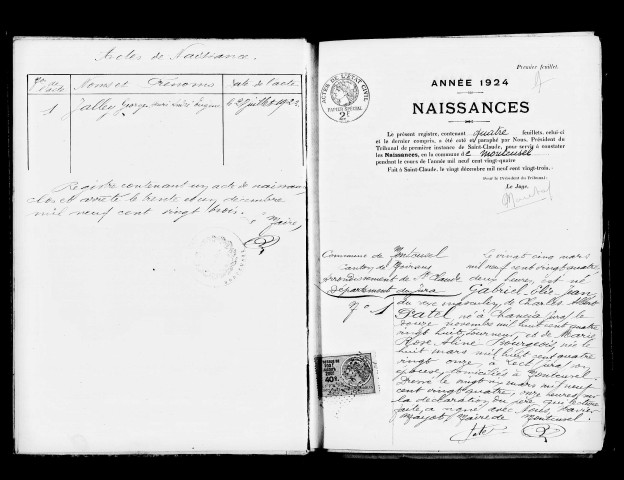 Actes de Naissance.
Nos de l'acte
Noms et Prénoms
Date de l'acte
1
Jalley Georges
2 Juillet 1923
Registre contenant un acte de naissance
clos et arrêté le trente et un décembre
mil neuf cent vingt trois.
Maire,
Premier feuillet.
ANNÉE 1924
ACTES DE L'ÉTAT CIVIL
PAPIER SPÉCIAL
NAISSANCES
Le présent registre, contenant quatre feuillets, celui-ci
et le dernier compris, a été coté et paraphé par Nous, Président du
Tribunal de première instance de Saint-Claude, pour servir à constater
les Naissances, en la commune de
pendant le cours de l'année mil neuf cent vingt-quatre
Fait à Saint-Claude, le vingt décembre mil neuf cent vingt-trois.
Pour le Président du Tribunal:
Le Juge,
Commune de
canton de Moirans
arrondissement de St Claude
Département du Jura
No 1
Le vingt cinq mars
mil neuf cent vingt quatre,
deux heures, est né
Gabriel Elie Jean
du sexe masculin, de Charles Albert
Patel, né à Chancia Jura, le
douze novembre mil huit cent quatre
vingt huit, tourneur, et de Marie
Rose Aline Bourgeois, née le
huit mars mil huit cent quatre
vingt onze à Lect, Jura, son
épouse, domiciliés à
Dressé le vingt mars mil neuf
cent vingt quatre, onze heures, sur
la déclaration du père qui, lecture
faite, a signé avec Nous, Xavier
Maire de
Patel